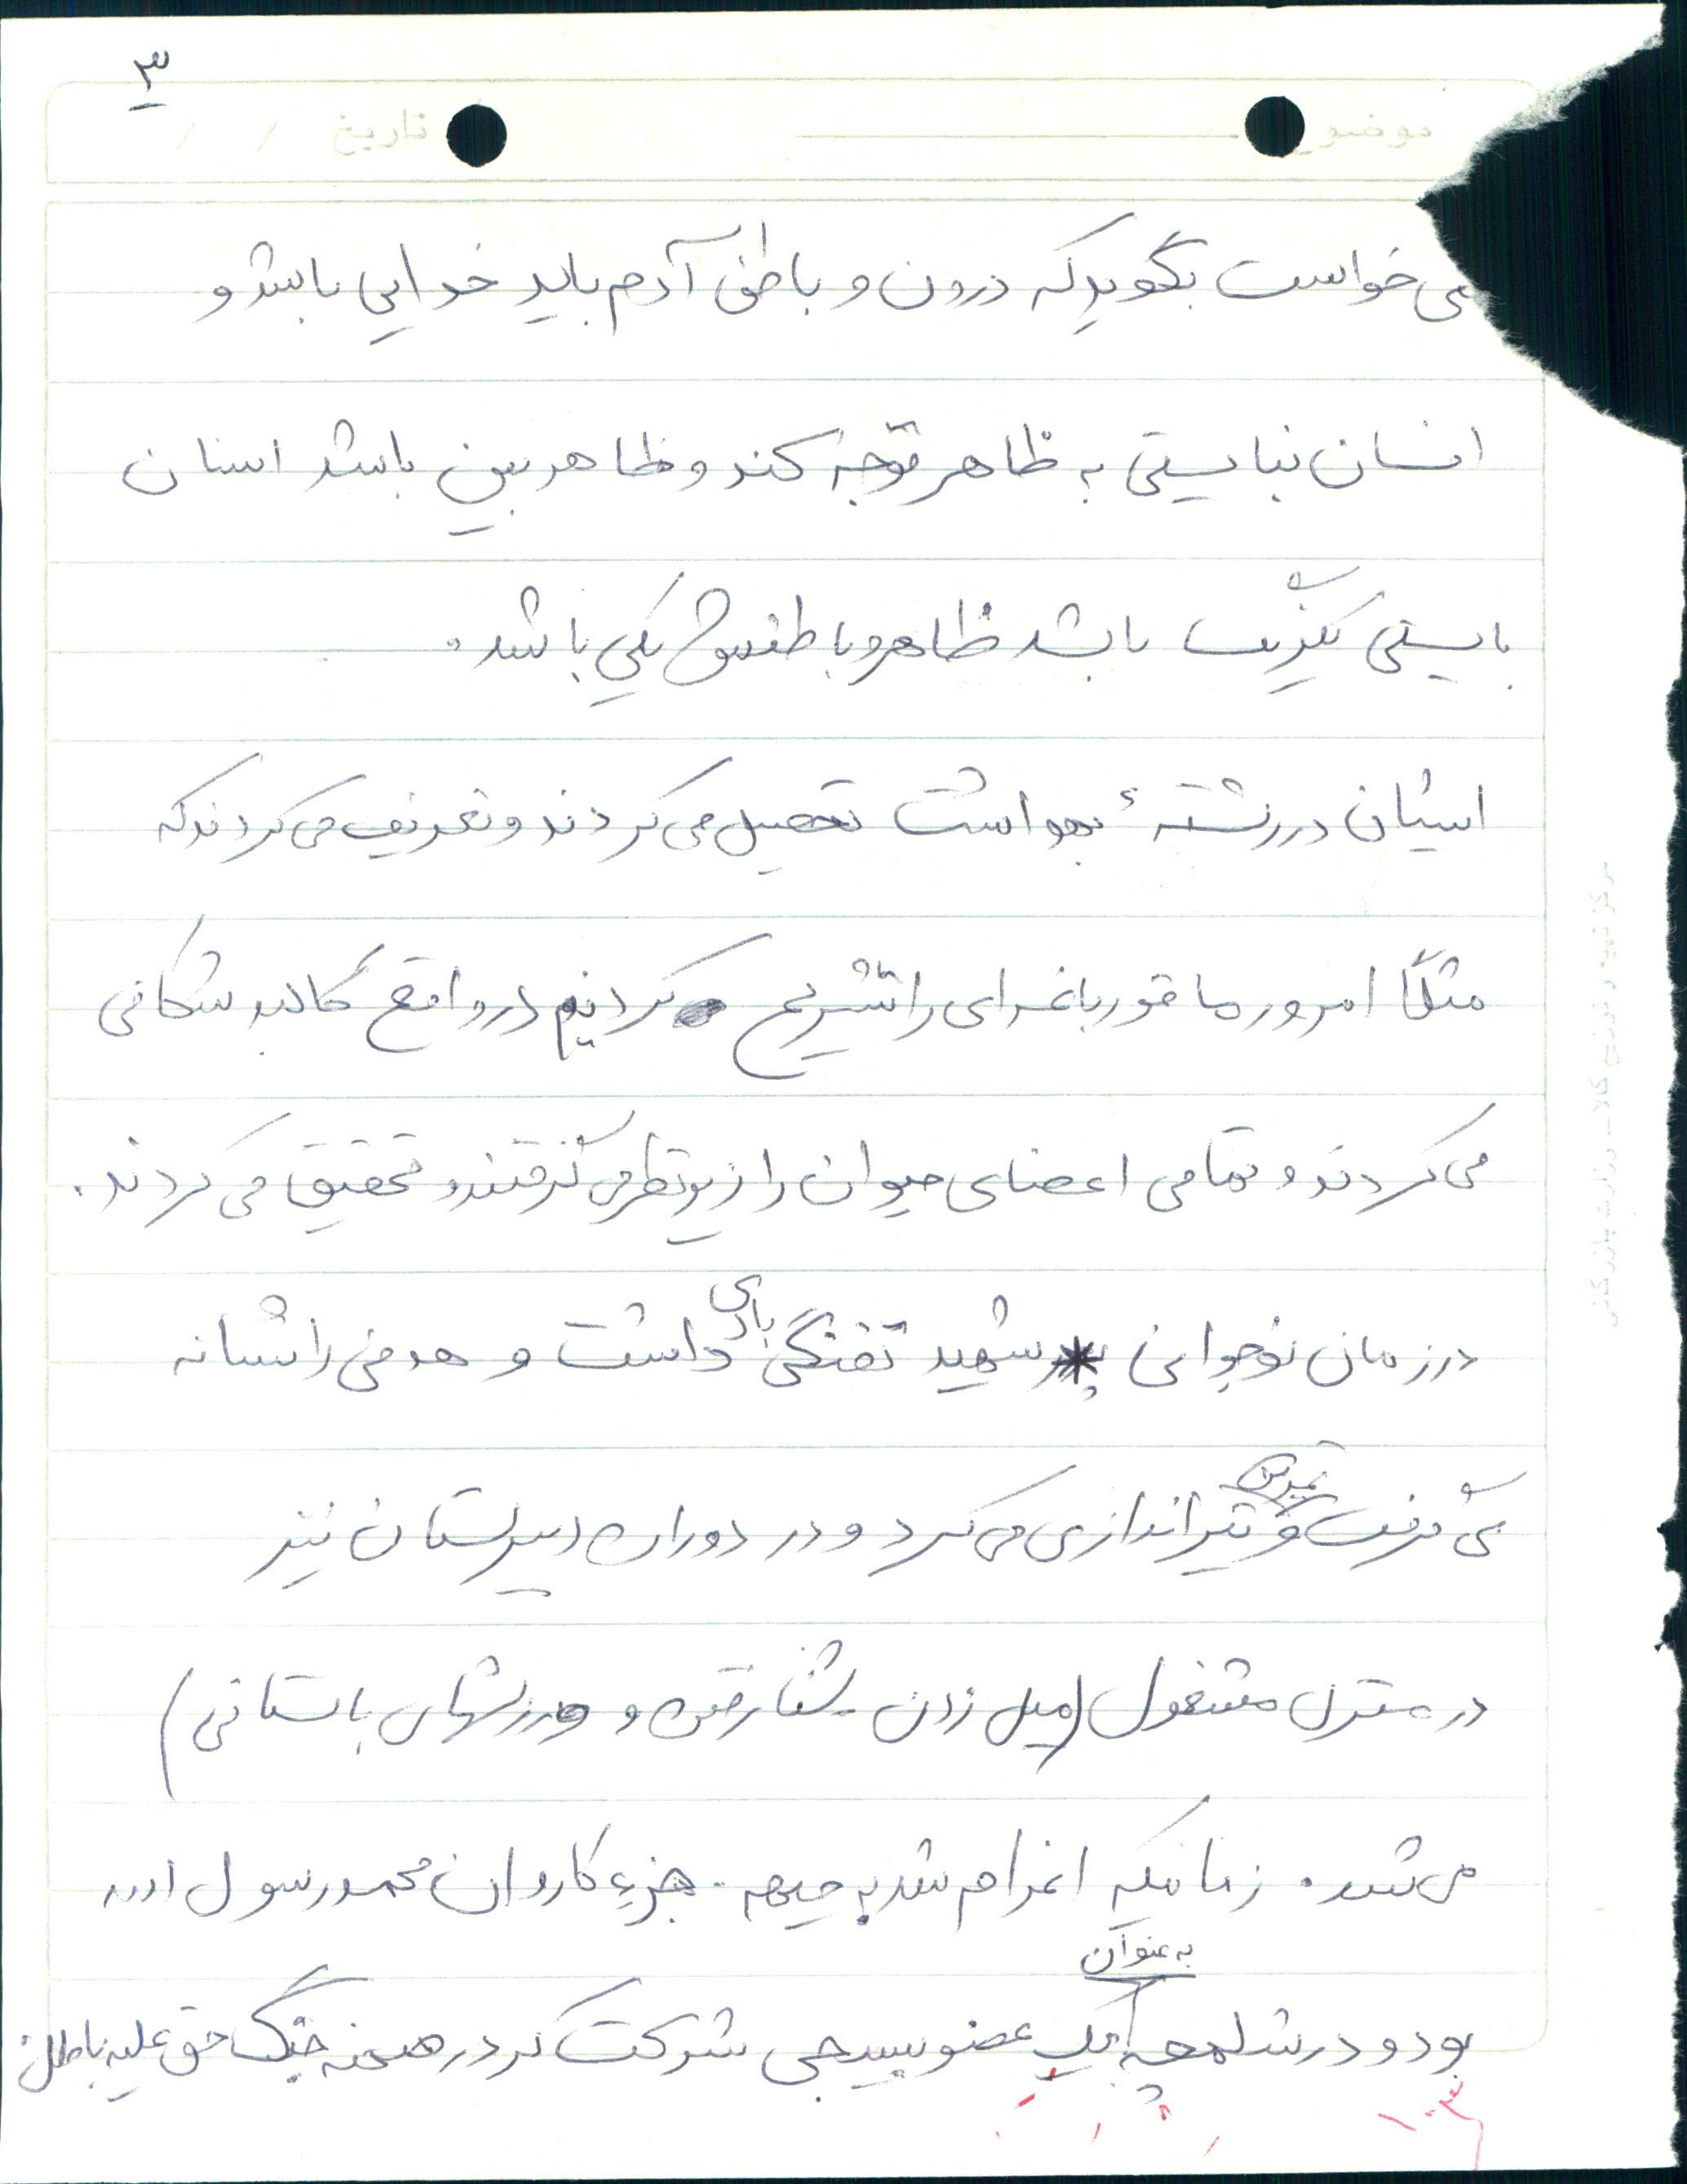 ۳
موضوع تاریخ / /
می خواست بگوید که درون و باطن آدم باید خدایی باشد و
انسان نبایستی به ظاهر توجه کند و ظاهربین باشد انسان
بایستی یکدست باشد ظاهر و باطنش یکی باشد.
ایشان در رشتهٔ بهداشت تحصیل می کردند و تعریف می کردند که
مثلاً امروز ما قورباغه ای را تشریح کردیم در واقع کالبد شکافی
می کردند و تمامی اعضای حیوان را زیر نظر می گرفتند و تحقیق می کردند.
در زمان نوجوانی شهید تفنگی بادی داشت و هدفی را نشانه
می گرفت و تمرین تیراندازی می کرد و در دوران دبیرستان نیز
در منزل مشغول (میل زدن - شنا رفتن و ورزشهای باستانی)
می شد. زمانیکه اعزام شد به جبهه. جزء کاروان محمد رسول الله
بود و در شلمچه به عنوان یک عضو بسیجی شرکت کرد در صحنه جنگ حق علیه باطل
۱۰۳
مرکز تهیه و توزیع کالا - وزارت بازرگانی